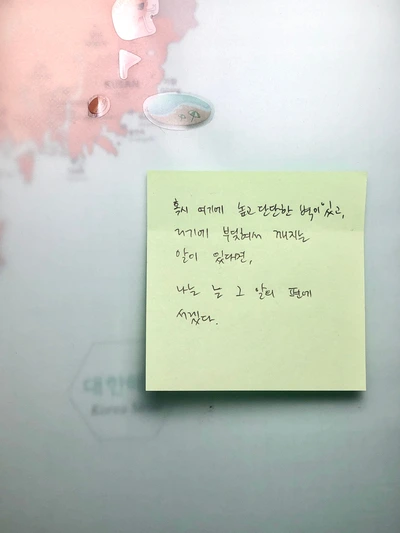 혹시 여기에 높고 단단한 벽이 있고,
거기에 부딪혀서 깨지는
알이 있다면,
나는 늘 그 알의 편에
서겠다.
대한
Korea